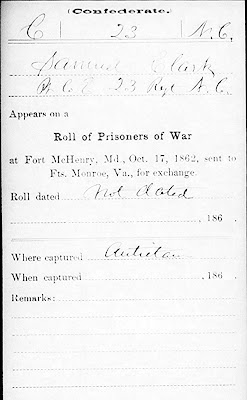 (Confederate.)
C | 23 | N.C.
Samuel Clark
Co E 23 Regt N.C.
Appears on a
Roll of Prisoners of War
at Fort McHenry, Md., Oct. 17, 1862, sent to
Fts. Monroe, Va., for exchange.
Roll dated Not dated
, 186 .
Where captured Antietam
When captured , 186 .
Remarks: